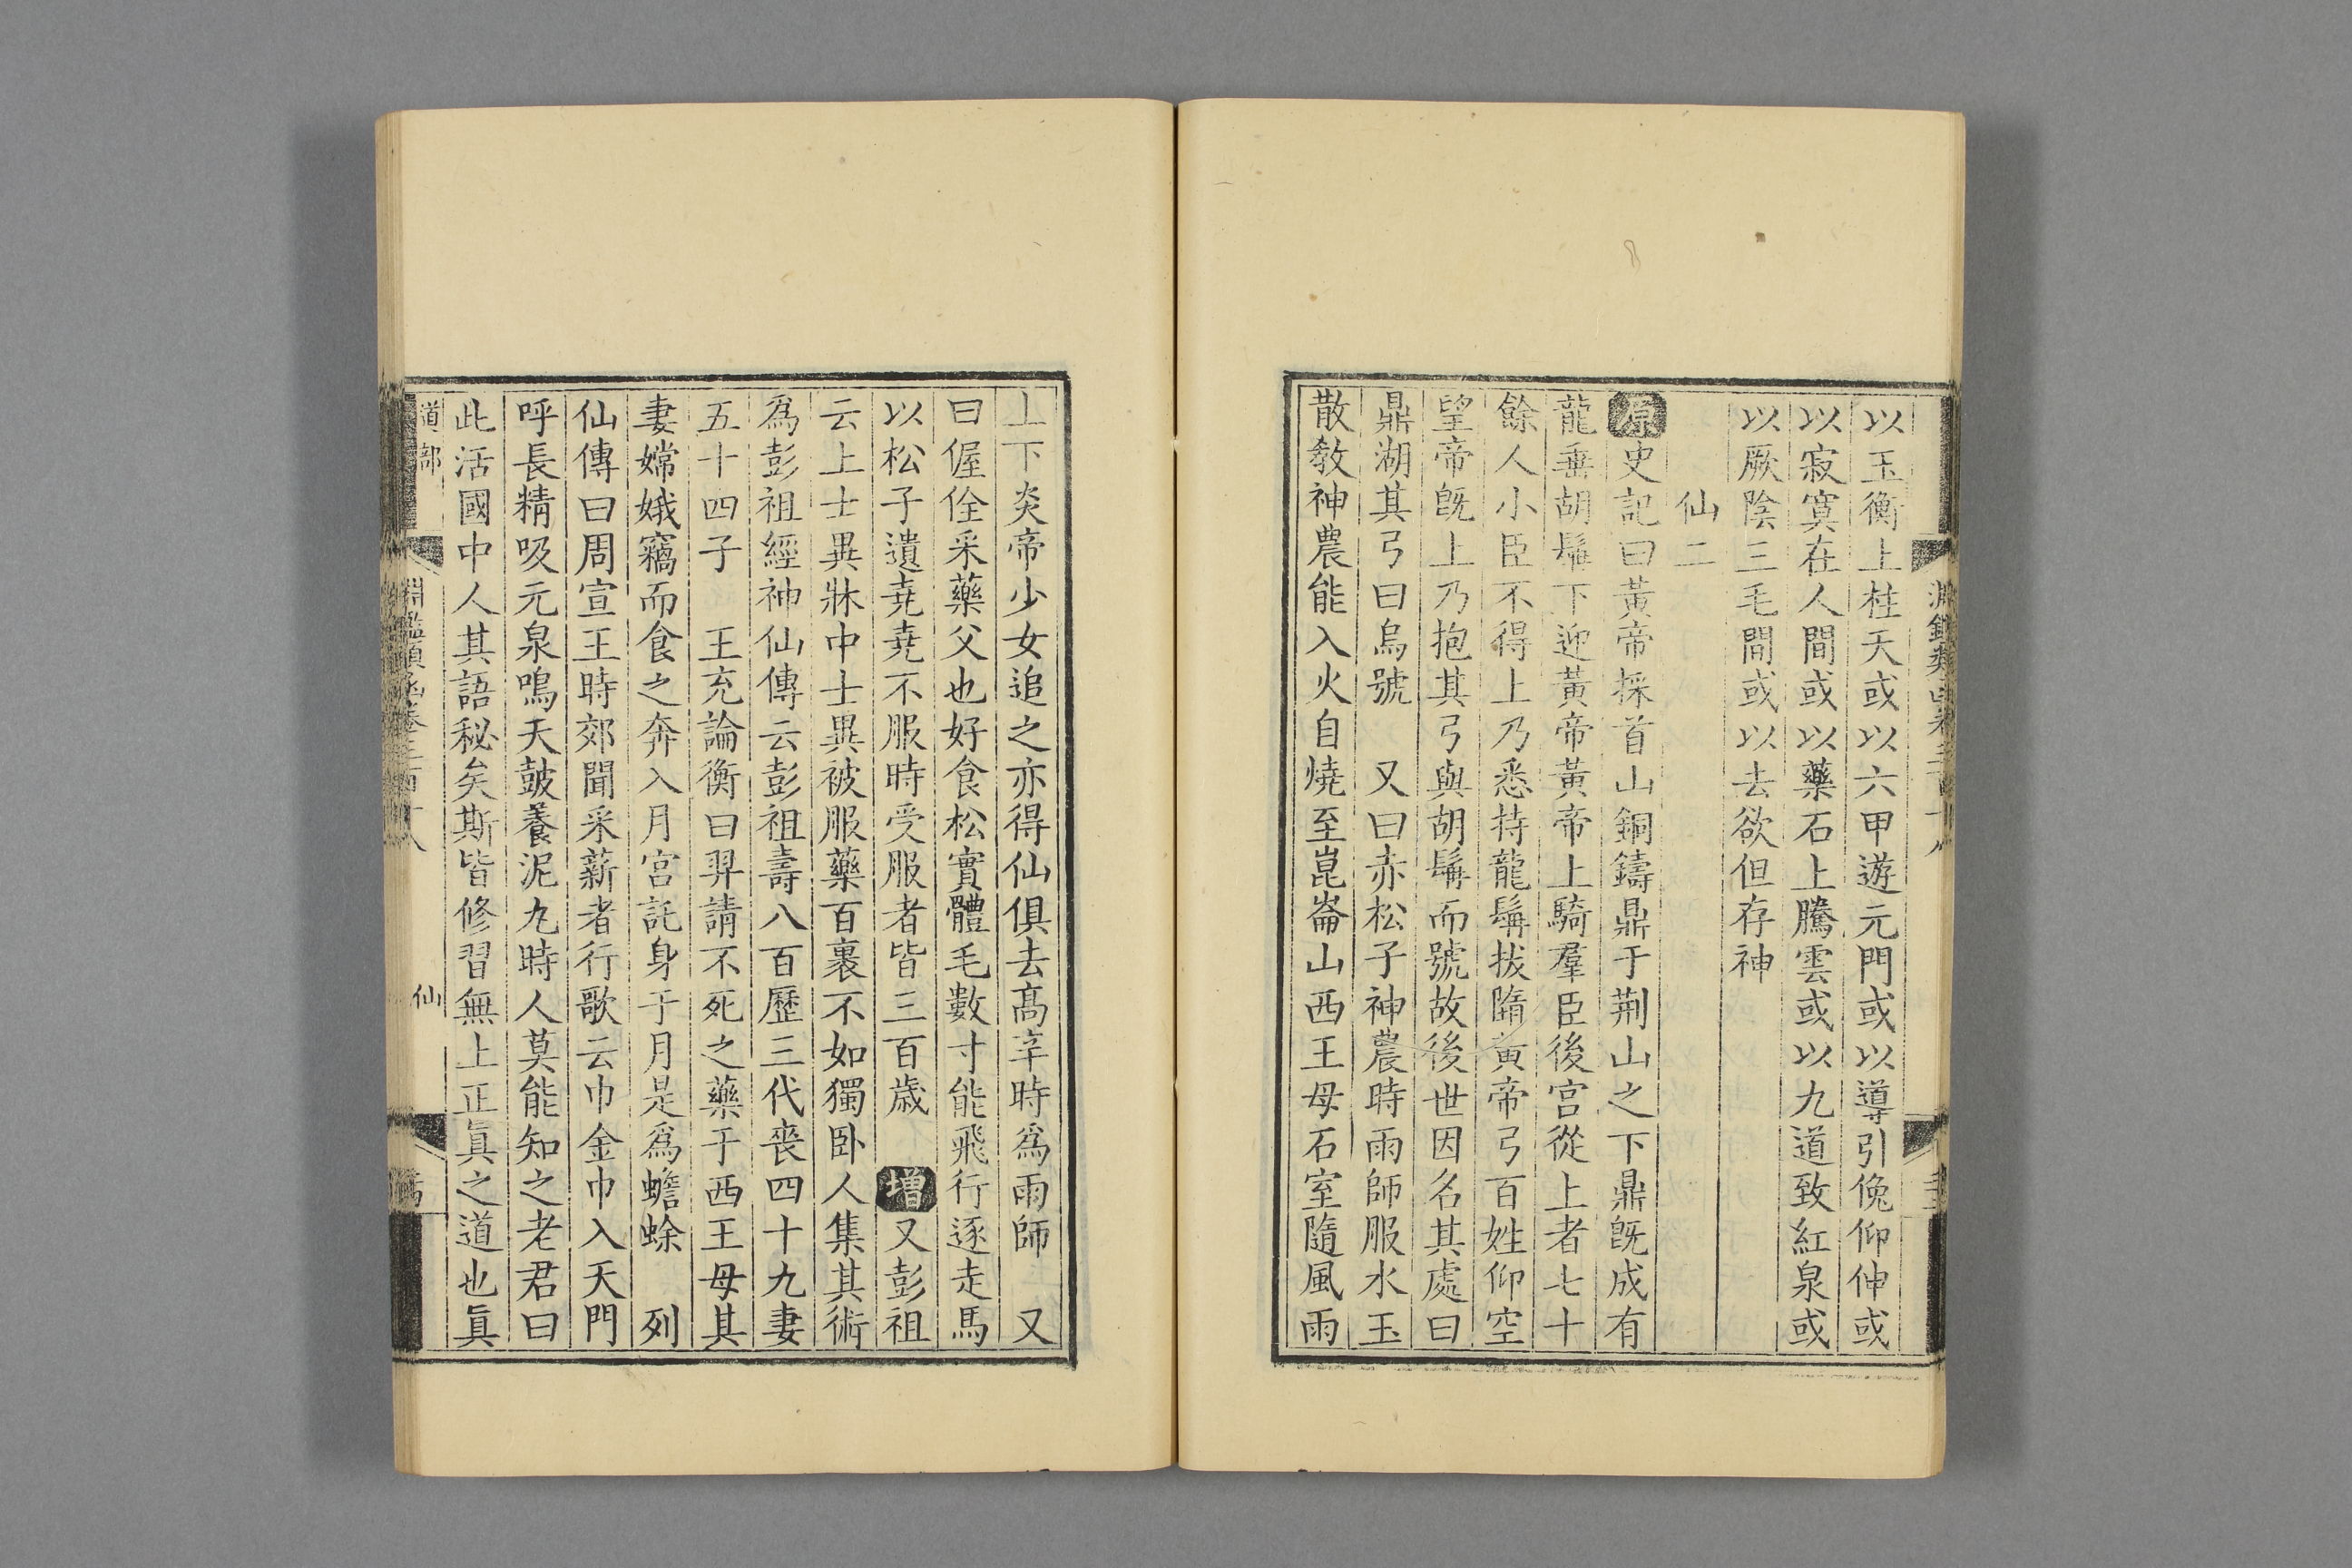 以玉衡上柱天或以六甲遊元門或以導引俛仰伸或
以寂寞在人間或以藥石上騰雲或以九道致紅泉或
以厥陰三毛間或以去欲但存神
仙二
原史記曰黃帝採首山銅鑄鼎于荆山之下鼎旣成有
龍垂胡髯下迎黃帝黃帝上騎羣臣後宮從上者七十
餘人小臣不得上乃悉持龍髯拔隋黃帝弓百姓仰空
望帝旣上乃抱其弓與胡髯而號故後世因名其處曰
鼎湖其弓曰烏號　又曰赤松子神農時雨師服水玉
散敎神農能入火自燒至崑崙山西王母石室隨風雨
上下炎帝少女追之亦得仙俱去高辛時爲雨師　又
曰偓佺采藥父也好食松實體毛數寸能飛行逐走馬
以松子遺堯堯不服時受服者皆三百歲　增又彭祖
云上士異牀中士異被服藥百裹不如獨卧人集其術
爲彭祖經神仙傳云彭祖壽八百歷三代喪四十九妻
五十四子　王充論衡曰羿請不死之藥于西王母其
妻嫦娥竊而食之奔入月宮託身于月是爲蟾蜍　列
仙傳曰周宣王時郊聞采薪者行歌云巾金巾入天門
呼長精吸元泉鳴天鼓養泥丸時人莫能知之老君曰
此活國中人其語秘矣斯皆修習無上正眞之道也眞
道部
淵鑑類函卷三百十八
仙